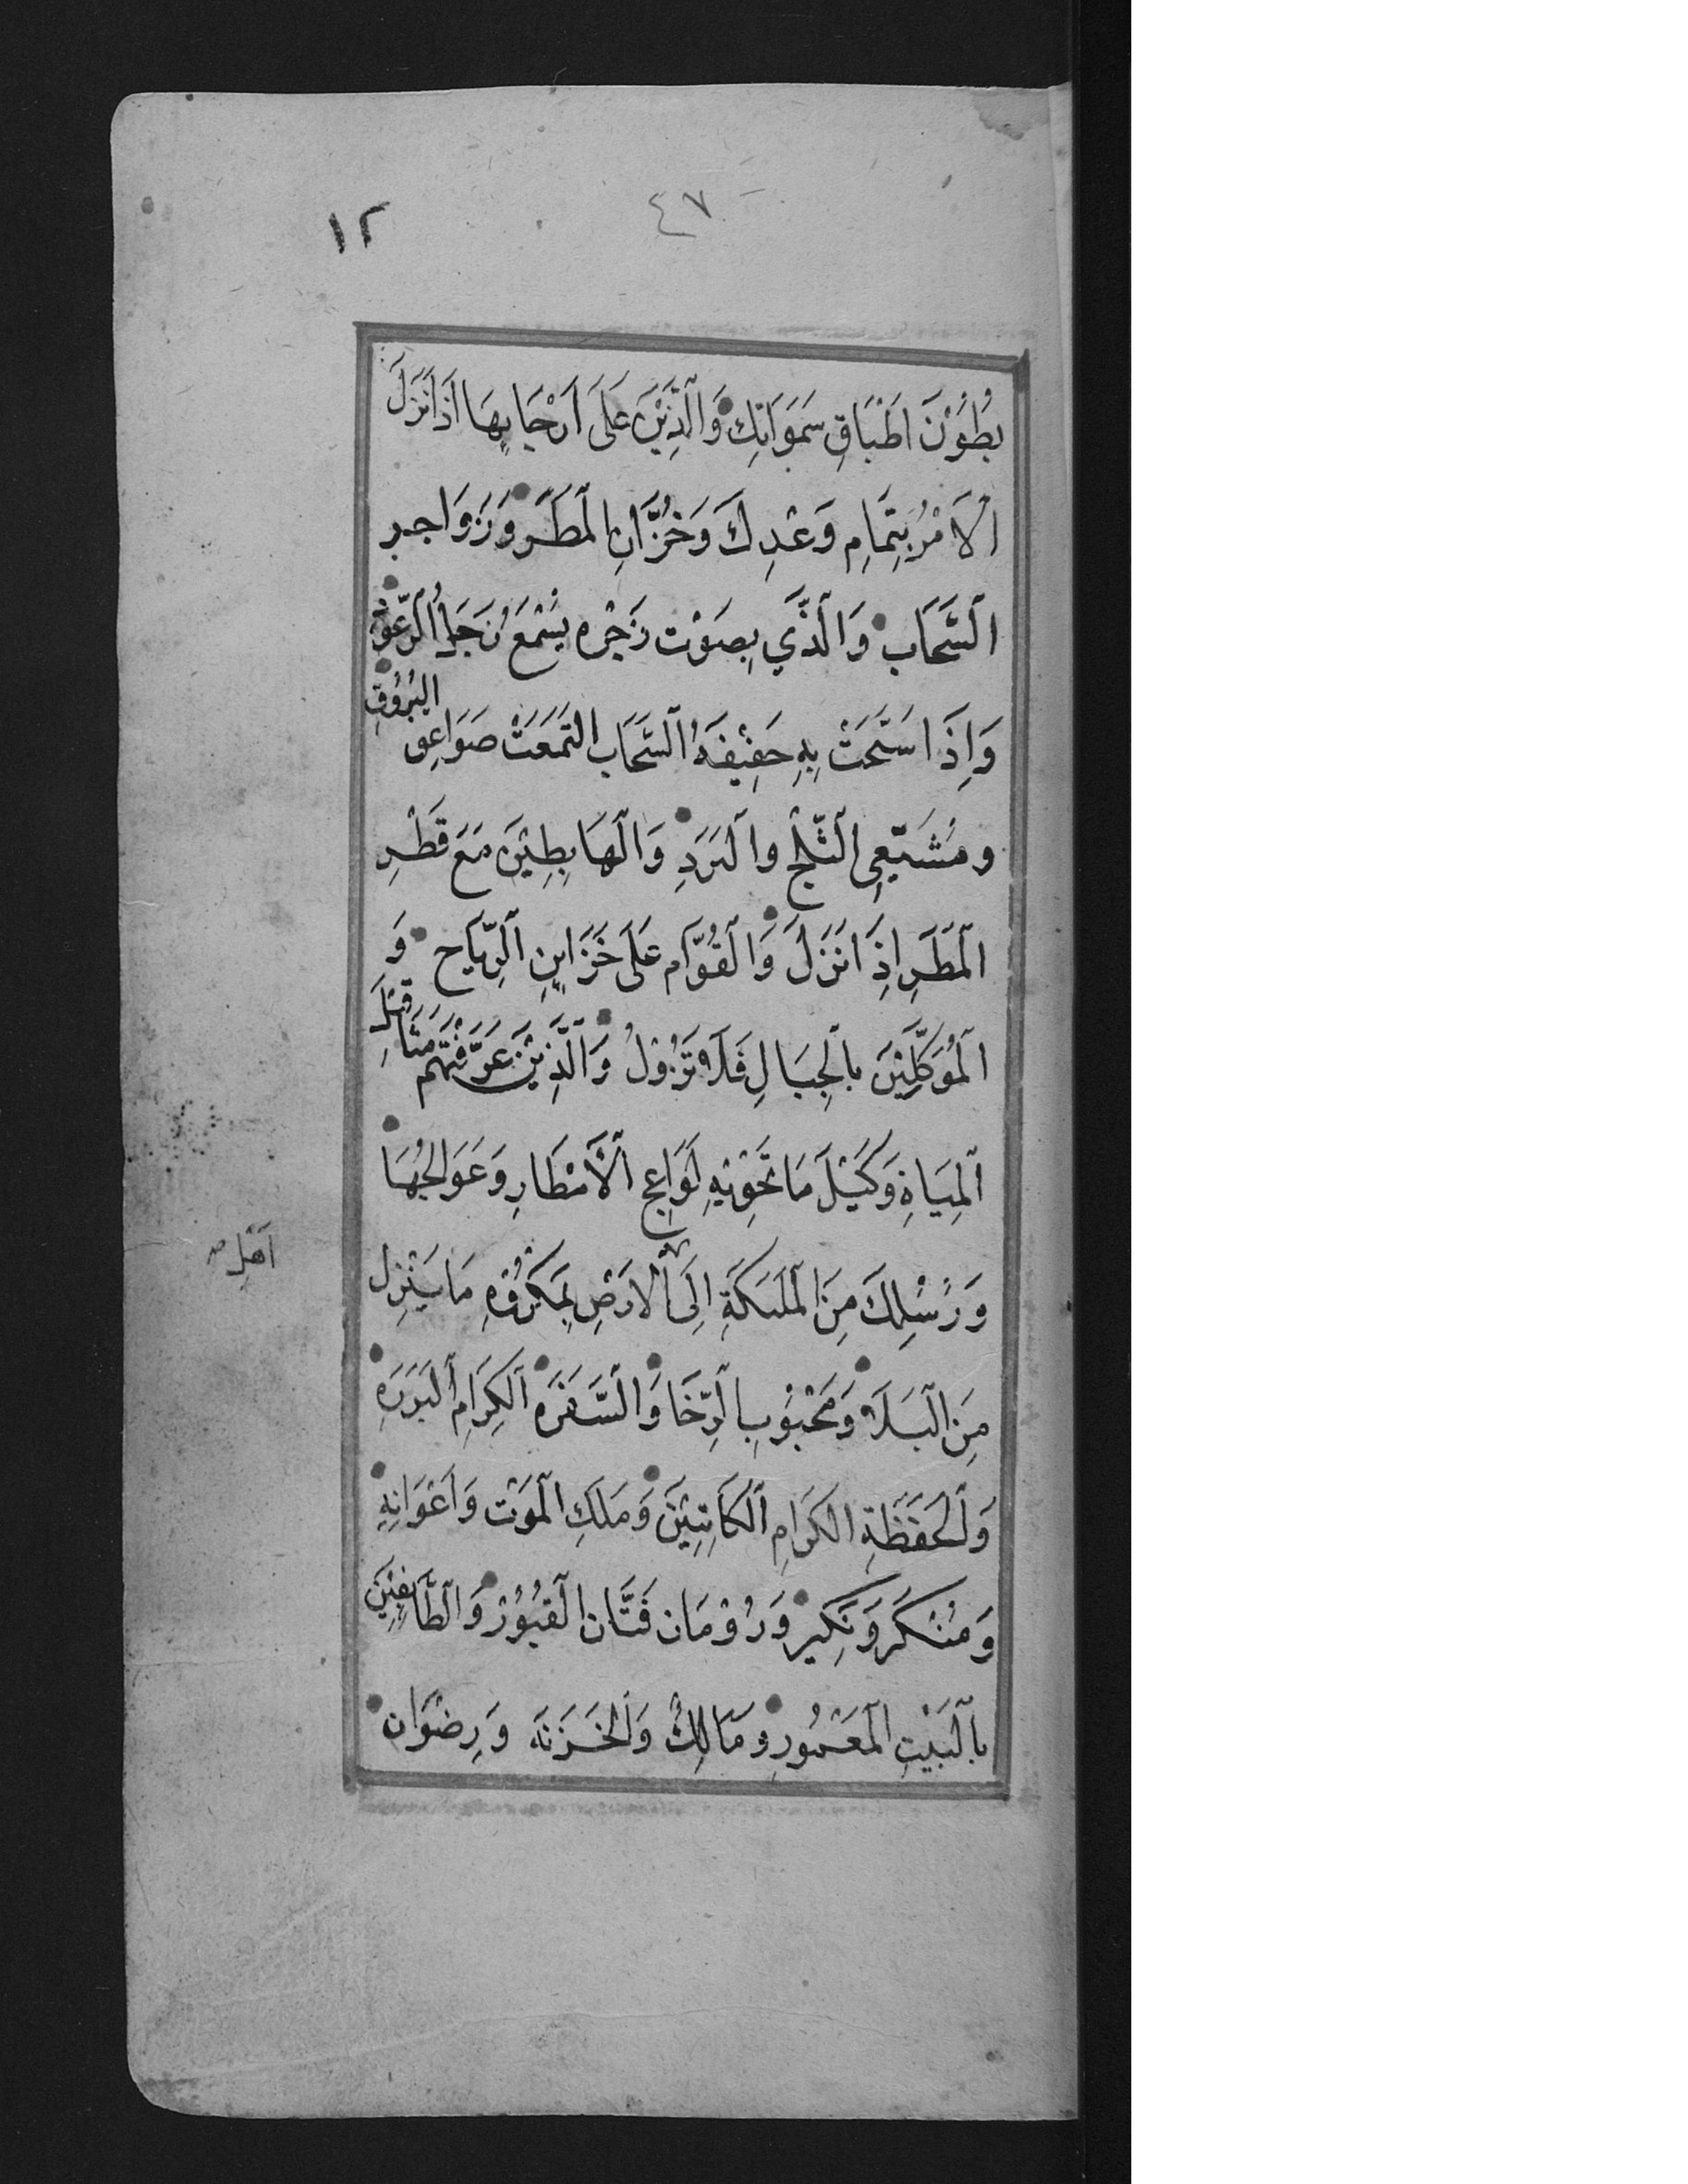 ٤٧
١٢
بُطُوْنَ اَطْبَاقِ سَمَوَاتِكَ وَالَّذِيْنَ عَلَى اَرْجَايِهَا اذَا نَزَلَ
الْاَمْرُ بِتَمَامِ وَعْدِكَ وَخُزَّانِ المَطَرِ وَزَوَاجِر
السَّحَابِ وَالَّذِي بِصَوْت زَجْرِه يُسْمَعُ زَجَلُ الرّعُوْدِ
وَاِذَا سَبَحَتْ بِهِ حَفِيْفَةُ السَّحَاب التَمَعَتْ صَوَاعِق البُرُوْقِ
ومُشَيِّعِي الثَّلْجِ والبَرَدِ وَالْهَابِطِيْنَ مَعَ قَطْرِ
المَطَرِ اِذَا نَزَلَ وَالْقُوَّام عَلَى خَزَايِنِ الرِّيَاح وَ
المُوَكَّلِيْنَ بالْجِبَالِ فَلَا تَزُوْلُ وَالَّذِيْنَ عَرَّفْتَهُم مَثَاقِيْلَ
الْمِيَاهِ وَكَيْلَ مَا تَحْوِيْهِ لَوَاعِج الْأَمْطَارِ وَعَوَالِجُهَا
وَرُسُلِكَ مِنَ المَلٰىكَةِ اِلَى الاَرْضِ بِمَكْرُوْهِ مَا يَنْزِل
اَهْلِ صح
مِنَ الْبَلَاءِ وَمَحْبُوْبِ الرِّخَا وَالسَّفَرَة الكِرَامِ البَرَرَةِ
وَالْحَفَظَةِ الكِرَامِ الكَاتِبِيْنَ وَمَلَكِ الْمَوْت وَاَعْوَانِهِ
وَمُنْكَر وَنَكِير وَرُوْمَان فَتَّان القُبُوْر وَالطَّائِفِيْنَ
بالْبَيْتِ المَعْمُورِ وَمَالِكٌ وَالْخَزَنَه وَرِضْوَان